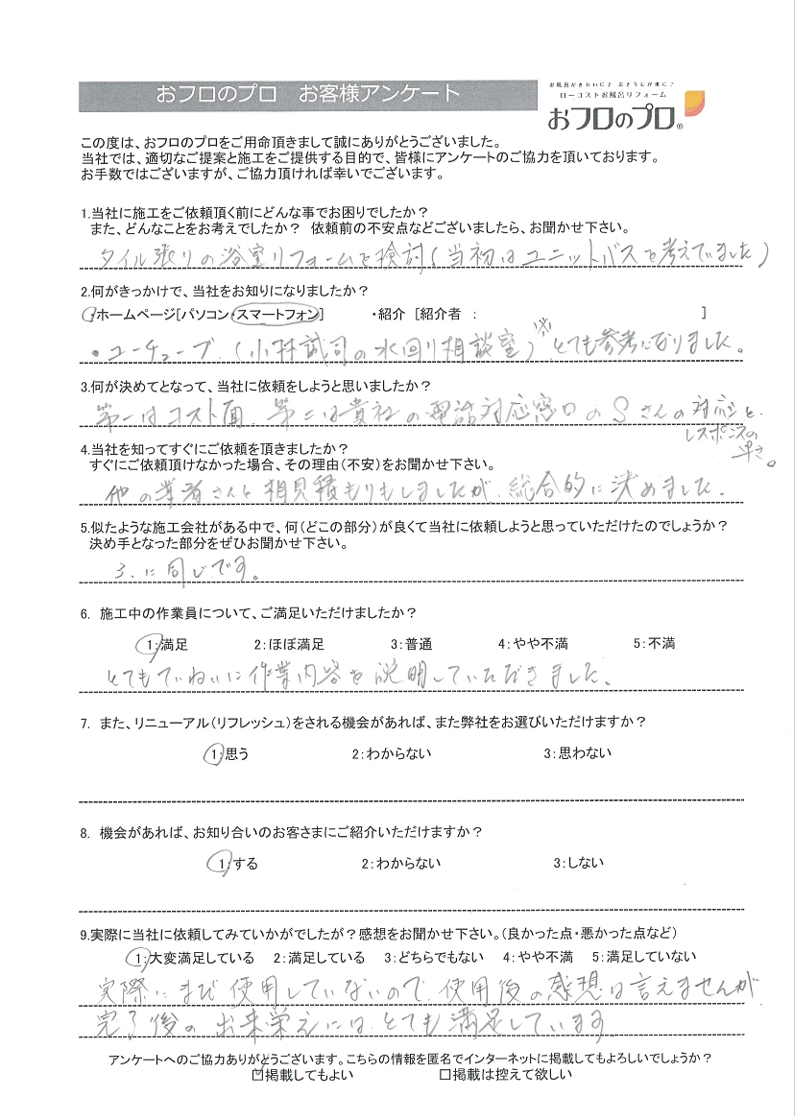 おフロのプロ　お客様アンケート
お風呂がきれいに♪ おそうじが楽に♪
ローコストお風呂リフォーム
おフロのプロ®
この度は、おフロのプロをご用命頂きまして誠にありがとうございました。
当社では、適切なご提案と施工をご提供する目的で、皆様にアンケートのご協力を頂いております。
お手数ではございますが、ご協力頂ければ幸いでございます。
1.当社に施工をご依頼頂く前にどんな事でお困りでしたか？
また、どんなことをお考えでしたか？ 依頼前の不安点などございましたら、お聞かせ下さい。
タイル張りの浴室リフォームを検討(当初はユニットバスを考えていました)
2.何がきっかけで、当社をお知りになりましたか？
・ホームページ[パソコン・スマートフォン]　・紹介 [紹介者 ：　]
・ユーチューブ.(小林誠司の水回り相談室)※とても参考になりました。
3.何が決めてとなって、当社に依頼をしようと思いましたか？
第一はコスト面、第二は貴社の電話対応窓口のSさんの対応と、
レスポンスの
早さ。
4.当社を知ってすぐにご依頼を頂きましたか？
すぐにご依頼頂けなかった場合、その理由(不安)をお聞かせ下さい。
他の業者さんと相見積もりもしましたが、総合的に決めました.
5.似たような施工会社がある中で、何(どこの部分)が良くて当社に依頼しようと思っていただけたのでしょうか？
決め手となった部分をぜひお聞かせ下さい。
3.に同じです。
6. 施工中の作業員について、ご満足いただけましたか？
1:満足　2:ほぼ満足　3:普通　4:やや不満　5:不満
とてもていねいに作業内容を説明していただきました.
7. また、リニューアル(リフレッシュ)をされる機会があれば、また弊社をお選びいただけますか？
1:思う　2:わからない　3:思わない
8. 機会があれば、お知り合いのお客さまにご紹介いただけますか？
1:する　2:わからない　3:しない
9.実際に当社に依頼してみていかがでしたが？感想をお聞かせ下さい。(良かった点・悪かった点など)
1:大変満足している　2:満足している　3:どちらでもない　4:やや不満　5:満足していない
実際にまだ使用していないので、使用後の感想は言えませんが
完了後の出来栄えには、とても満足しています
アンケートへのご協力ありがとうございます。こちらの情報を匿名でインターネットに掲載してもよろしいでしょうか？
☑掲載してもよい　□掲載は控えて欲しい